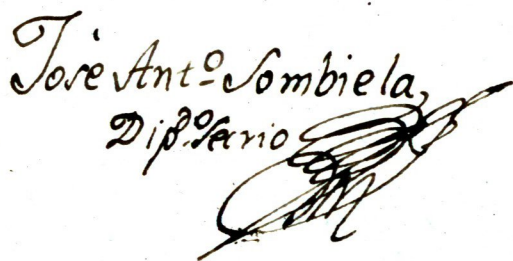 José Antº Sombiela,
Dipº Secrio